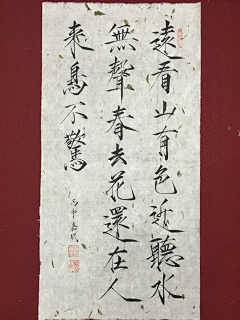 遠看山有色近聽水
無聲春去花還在人
來鳥不驚
丙申